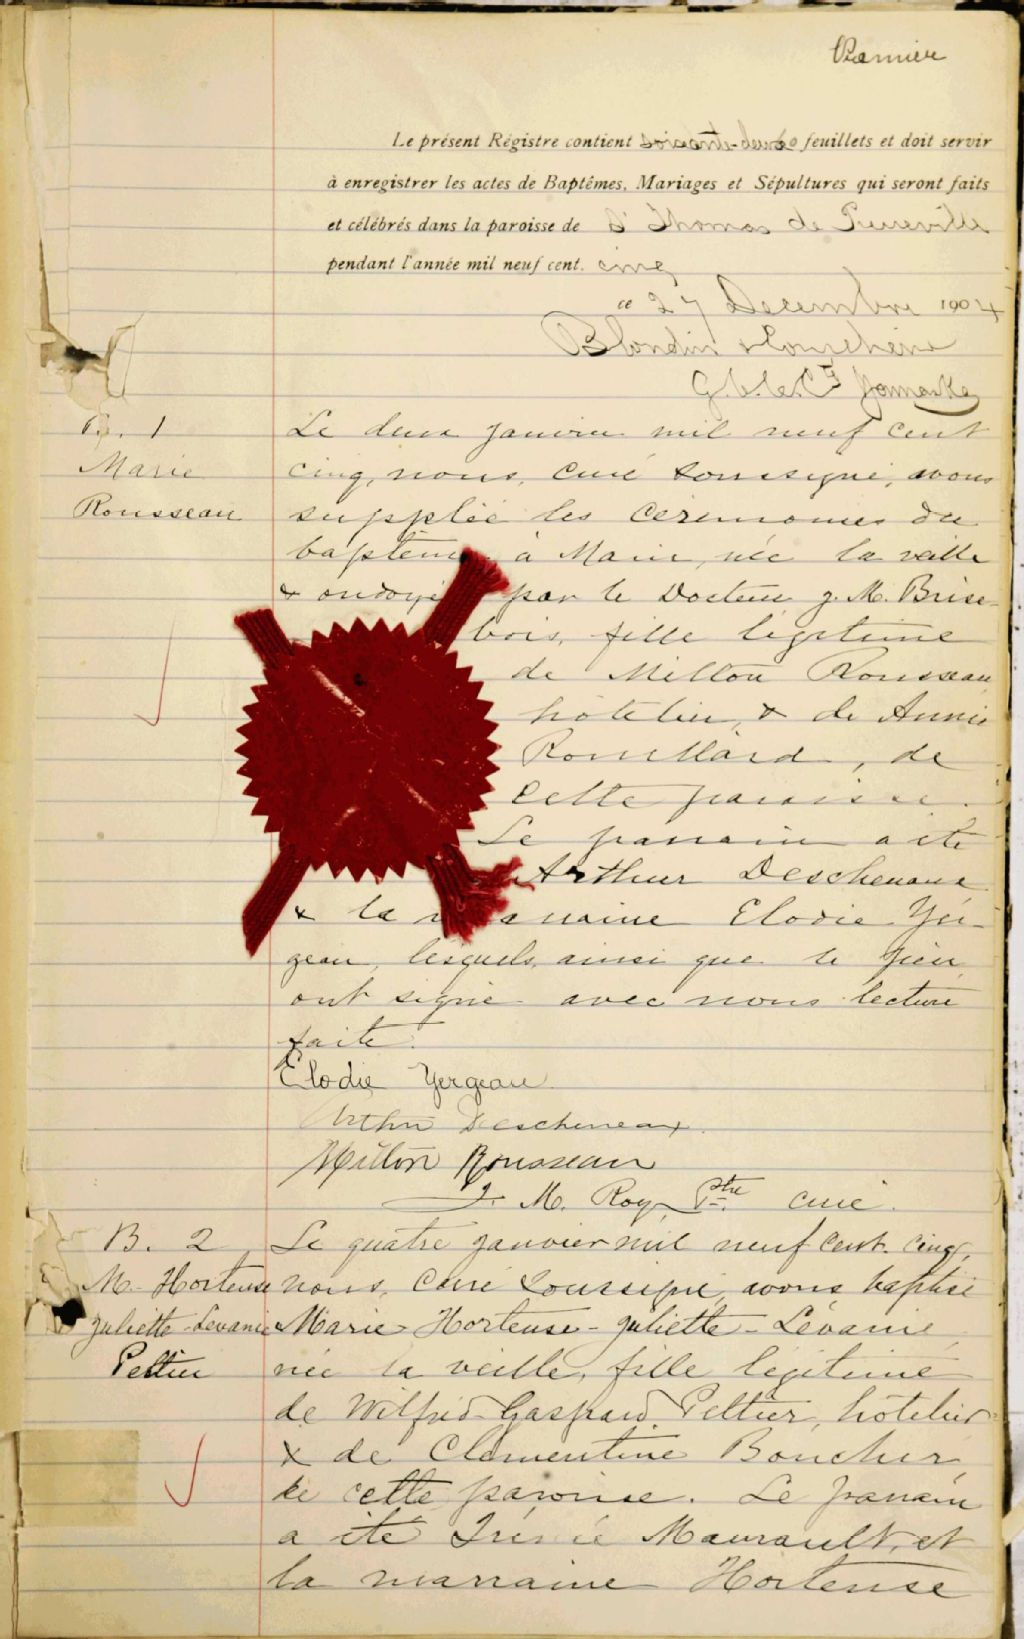 Premier
Le présent Régistre contient soixante-deux feuillets et doit servir
à enregistrer les actes de Baptêmes, Mariages et Sépultures qui seront faits
et célébrés dans la paroisse de St Thomas de Pierreville
pendant l'année mil neuf cent. cinq
ce 27 Decembre 1904
Blondin &
B. 1
Marie
Rousseau
Le deux janvier mil neuf cent
cinq, nous, curé soussigné, avons
supplée les cérémonies du
baptême à Marie, née la veille
& ondoyée par le Docteur J. M. Brise-
bois, fille légitime
de Milton Rousseau
hôtelier, & de Annie
Rouillard, de
cette paroisse.
Le parrain a été
Arthur Descheneaux
& la marraine Elodie Yer-
geau, lesquels, ainsi que le père
ont signé avec nous lecture
faite.
Elodie Yergeau
Arthur Descheneaux
Milton Rousseau
J. M. Roy, Ptre curé.
B. 2
M. Hortense
Juliette-Levanie
Peltier
Le quatre janvier mil neuf cent. cinq,
nous, curé soussigné, avons baptisé
Marie Hortense-Juliette-Lévanie
née la veille, fille légitime
de Wilfrid Gaspard Peltier, hôtelier
& de Clementine Boucher
de cette paroisse. Le parrain
a été Irénée Maurault, et
la marraine Hortense